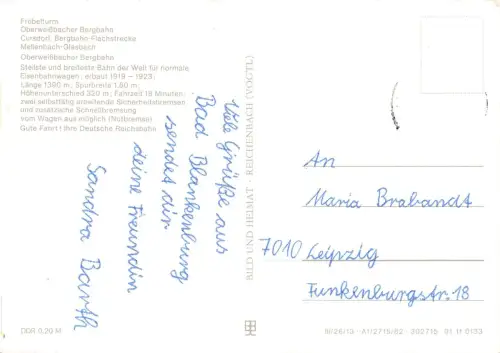 Fröbelturm
Oberweißbacher Bergbahn
Cursdorf, Bergbahn-Flachstrecke
Mellenbach-Glasbach
Oberweißbacher Bergbahn
Steilste und breiteste Bahn der Welt für normale
Eisenbahnwagen; erbaut 1919 – 1923;
Länge 1390 m; Spurbreite 1,80 m
Höhenunterschied 320 m; Fahrzeit 18 Minuten;
zwei selbsttätig arbeitende Sicherheitsbremsen
und zusätzliche Schnellbremsung
vom Wagen aus möglich (Notbremse)
Gute Fahrt! Ihre Deutsche Reichsbahn
Viele Grüße aus
Bad Blankenburg
sendet dir
deine Freundin
Sandra Barth
BILD UND HEIMAT · REICHENBACH (VOGTL)
An
Maria Brabandt
7010 Leipzig
Funkenburgstr. 18
DDR 0,20 M
III/26/13 A1/2715/82 202715 01 11 0133